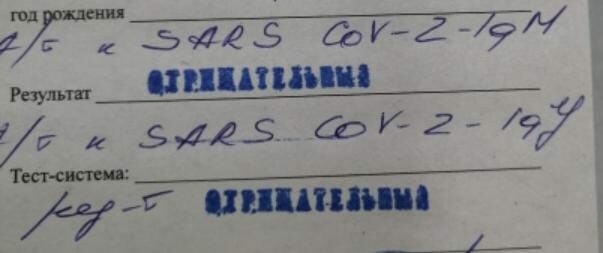 год рождения
А/т к SARS CoV-2-IgM
Результат ОТРИЦАТЕЛЬНЫЙ
А/т к SARS CoV-2-IgG
Тест-система:
рез-т ОТРИЦАТЕЛЬНЫЙ